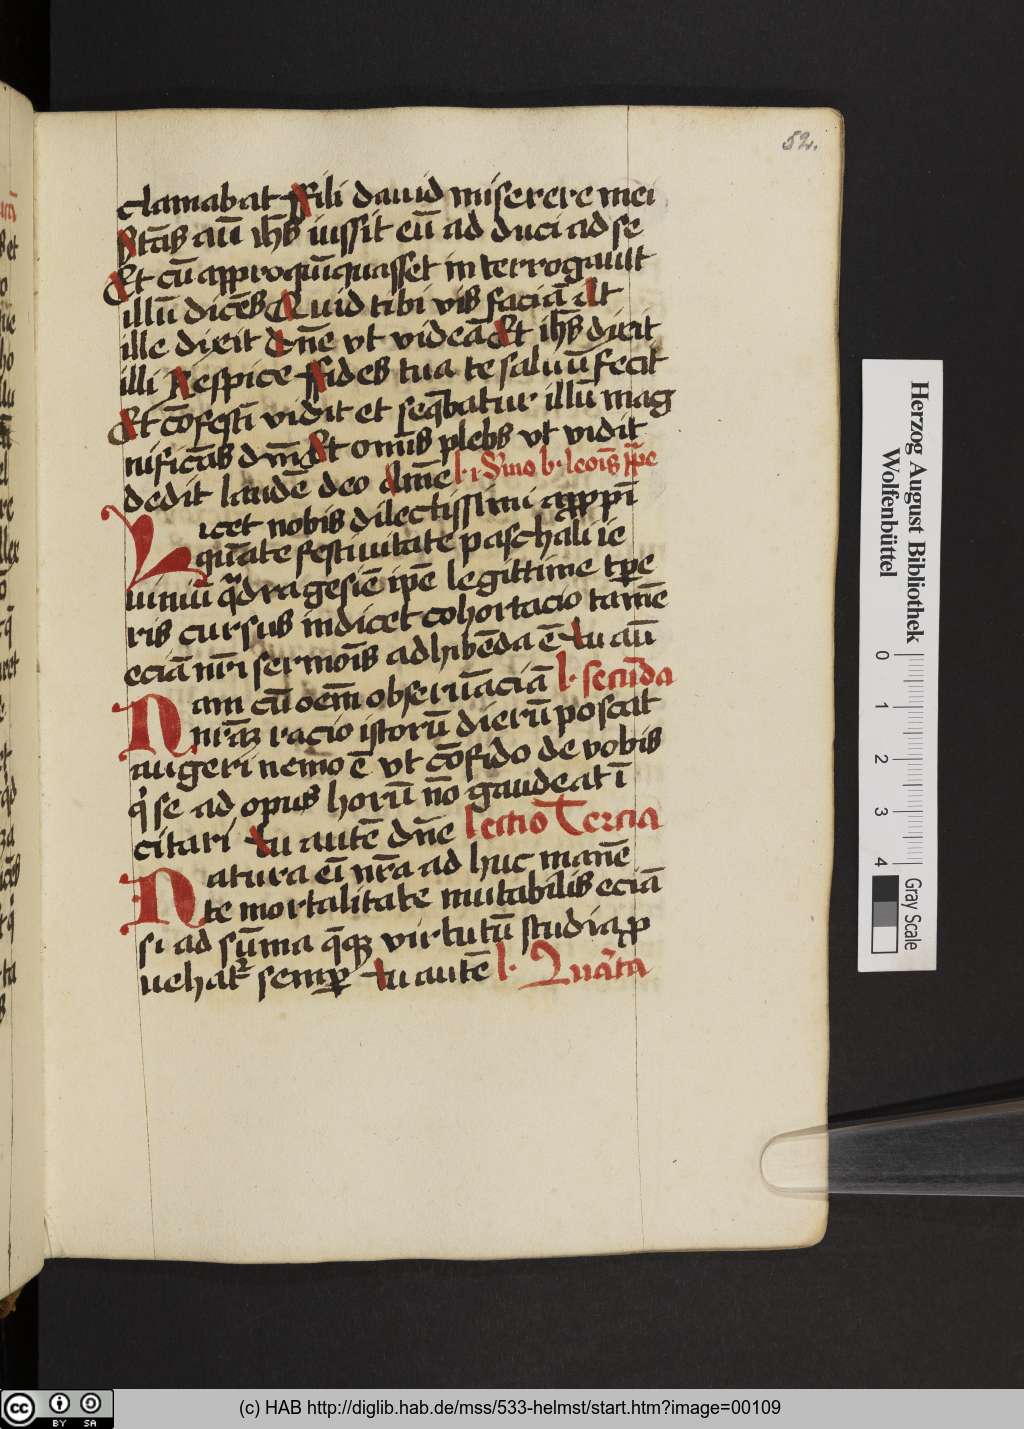 52.
clamabat ffili dauid miserere mei
Stās aūt ihs̄ iussit eū ad duci ad se
Et cū appropīquasset in terrogauit
illū dicēs Quid tibi vis faciā At
ille dixit dn̄e vt videā Et ihs̄ dixit
illi Respice ffides tua te saluū fecit
Et cōfestī vidit et seq̄batur illū mag
nificās dm̄ Et omīs plebs vt vidit
dedit laudē deo dn̄e l. i Smo b. leoīs ppe
Licet nobis dilectissimi apppī
quāte festiuitate paschali ie
iuniū q̄dragesiē ipē legittime tpe
ris cursus indicet cohortacio tamē
eciā nr̄i sermoīs adhibēda ē tu aū
Nam cū oem̄ obseruāciā l. secūda
nr̄aꝫ racio istorū dierū poscat
augeri nemo ē vt cōfido de vobis
q̄ se ad opus horū nō gaudeat ī
citari tu autē dn̄e lectio Tercia
Natura eī nr̄a ad huc manē
te mortalitate mutabilis eciā
si ad sūma q̄qꝫ virtutū studia ꝓ
uehat᷑ semꝑ tu autē l. Quārta
Herzog August Bibliothek
Wolfenbüttel
0
1
2
3
4
Gray Scale
cc BY SA
(c) HAB http://diglib.hab.de/mss/533-helmst/start.htm?image=00109